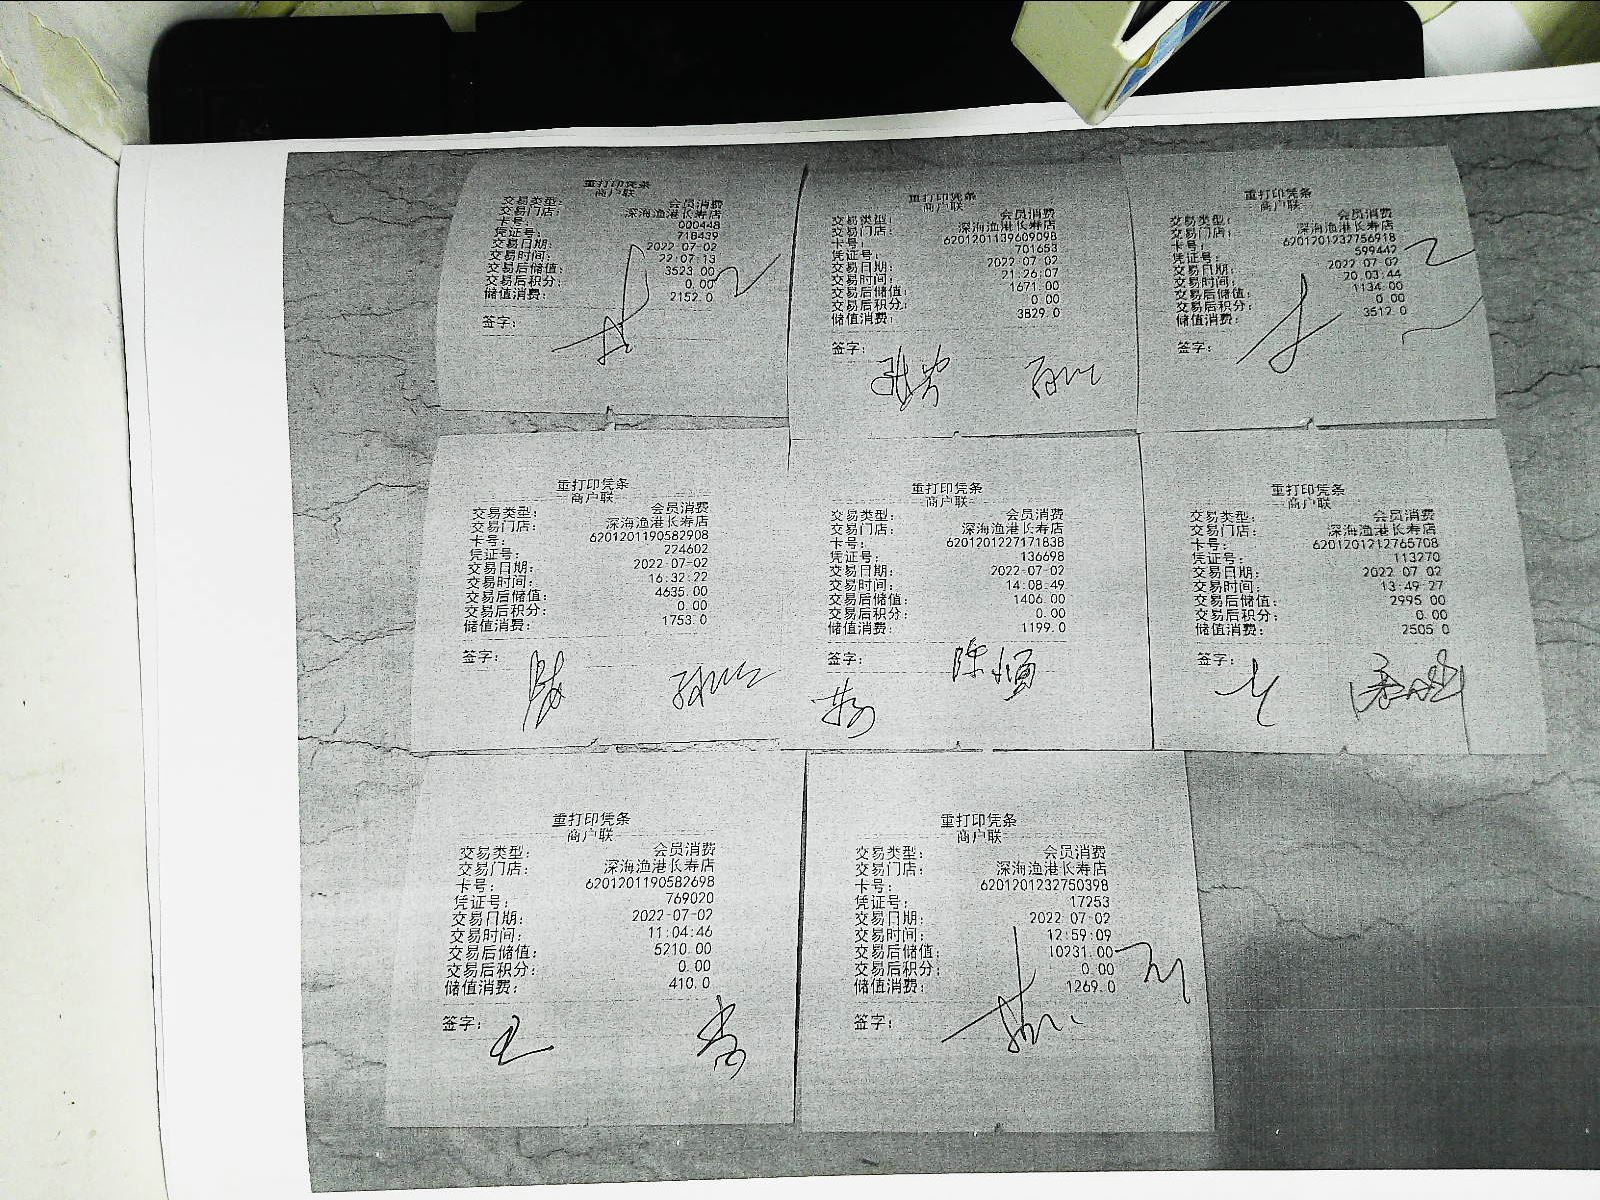 重打印凭条
商户联
交易类型: 会员消费
交易门店: 深海渔港长寿店
卡号: 000448
凭证号: 718439
交易日期: 2022-07-02
交易时间: 22:07:13
交易后储值: 3523.00
交易后积分: 0.00
储值消费: 2152.0
签字:
重打印凭条
商户联
交易类型: 会员消费
交易门店: 深海渔港长寿店
卡号: 6201201139609098
凭证号: 701653
交易日期: 2022-07-02
交易时间: 21:26:07
交易后储值: 1671.00
交易后积分: 0.00
储值消费: 3829.0
签字:
重打印凭条
商户联
交易类型: 会员消费
交易门店: 深海渔港长寿店
卡号: 6201201232756918
凭证号: 599442
交易日期: 2022-07-02
交易时间: 20:03:44
交易后储值: 1134.00
交易后积分: 0.00
储值消费: 3512.0
签字:
重打印凭条
商户联
交易类型: 会员消费
交易门店: 深海渔港长寿店
卡号: 6201201190582908
凭证号: 224602
交易日期: 2022-07-02
交易时间: 16:32:22
交易后储值: 4635.00
交易后积分: 0.00
储值消费: 1753.0
签字:
重打印凭条
商户联
交易类型: 会员消费
交易门店: 深海渔港长寿店
卡号: 6201201227171838
凭证号: 136698
交易日期: 2022-07-02
交易时间: 14:08:49
交易后储值: 1406.00
交易后积分: 0.00
储值消费: 1199.0
签字:
重打印凭条
商户联
交易类型: 会员消费
交易门店: 深海渔港长寿店
卡号: 6201201212765708
凭证号: 113270
交易日期: 2022-07-02
交易时间: 13:49:27
交易后储值: 2995.00
交易后积分: 0.00
储值消费: 2505.0
签字:
重打印凭条
商户联
交易类型: 会员消费
交易门店: 深海渔港长寿店
卡号: 6201201190582698
凭证号: 769020
交易日期: 2022-07-02
交易时间: 11:04:46
交易后储值: 5210.00
交易后积分: 0.00
储值消费: 410.0
签字:
重打印凭条
商户联
交易类型: 会员消费
交易门店: 深海渔港长寿店
卡号: 6201201232750398
凭证号: 17253
交易日期: 2022-07-02
交易时间: 12:59:09
交易后储值: 10231.00
交易后积分: 0.00
储值消费: 1269.0
签字: